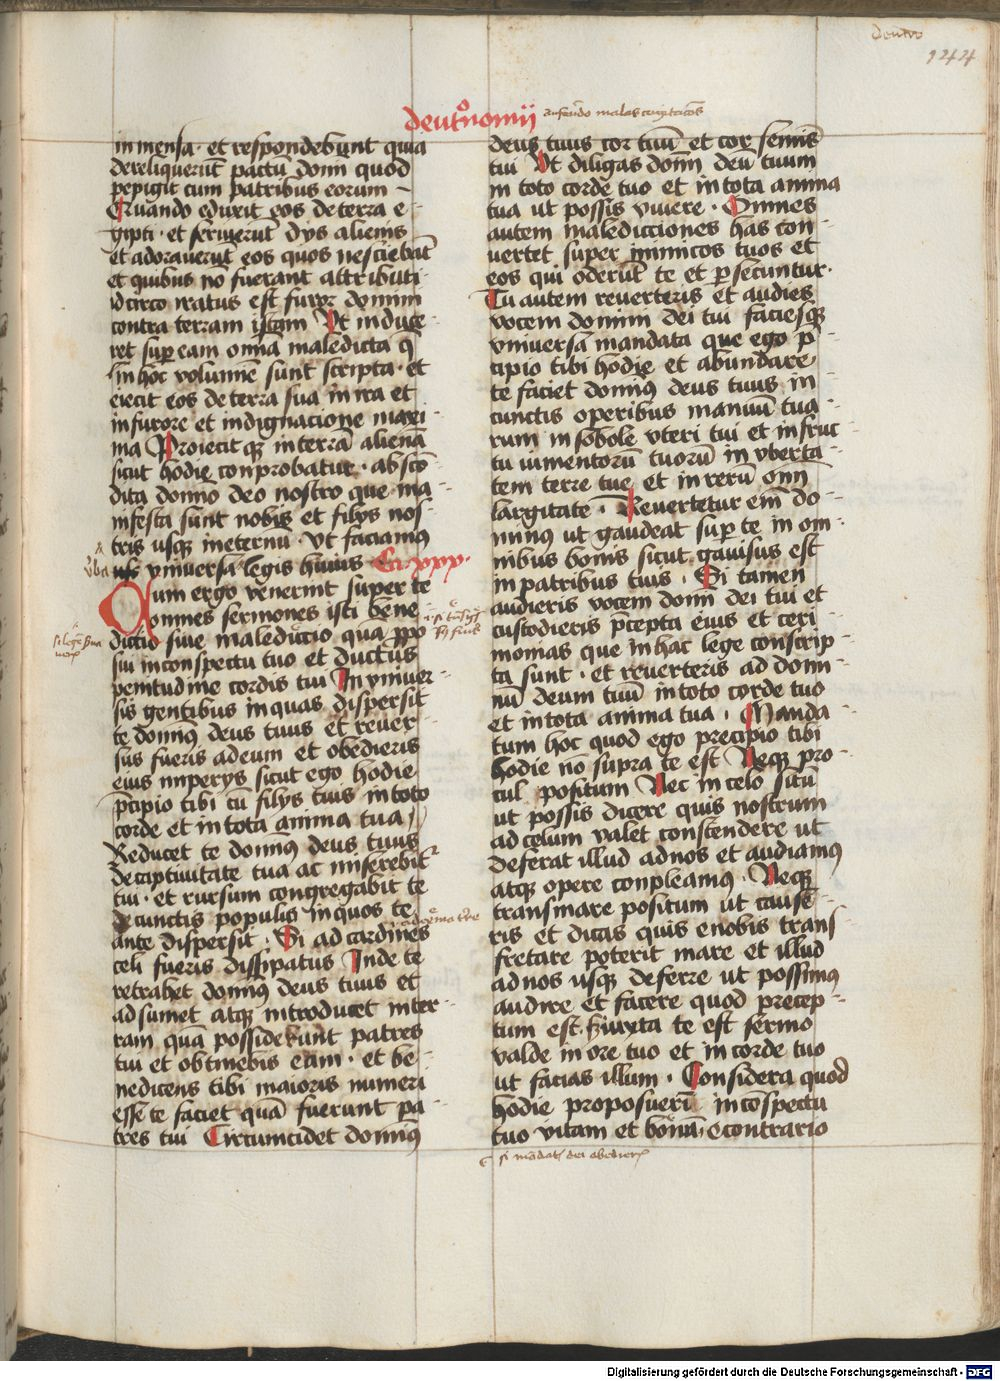 deutro
144
deutͦnomij
auferēdo malas cupitatōes
inmensa · et respondebunt quia
dereliquerūt pactū domī quod
pepigit cum patribus eorum –
Quando eduxit eos de terra e-
gipti · et servierūt dys alienis
et adoraverūt eos quos nesciebāt
et quibus nō fuerant attributi
idcirco iratus est furor domini
contra terram istam Ut induce-
ret sup eam omīa maledicta q̄
in hoc volumīe sunt scripta · et
eiecit eos de terra sua in ira et
in furore et indignacione maxi-
ma Proiecitqꝫ in terrā alienā
sicut hodie conprobatur · abscō-
dita domīo deo nostro que ma-
nifesta sunt nobis et filys nos-
tris usqꝫ ineternū · ut faciamꝰ
v̄ba
universa legis huius Ca xxx ·
Qum ergo venerint super te
omnes sermones isti bene-
dictio sive maledictio quā ꝓpo-
sui inconspectu tuo et ductus
penitudine cordis tui In univer-
sis gentibus in quas dispersit
te domīꝰ deus tuus et rever-
sus fueris ad eum et obedieris
eius imperys sicut ego hodie
p̄cipio tibi cū filys tuis in toto
corde et in tota anima tua
Reducet te domīꝰ deus tuus
de captivitate tua ac miserebit̄
tui · et rursum congregabit te
de cunctis populis in quos te
ante dispersit · Si ad cardines
celi fueris dissipatus Inde te
retrahet domīꝰ deus tuus et
adsumet atqꝫ introducet in ter-
ram quā possiderunt patres
tui et obtinebis eam · et be-
nedicens tibi maioris numeri
esse te faciet quā fuerunt pa-
tres tui Circumcidet domīꝰ
deus tuus cor tuū et cor semīs
tui Ut diligas domī deū tuum
in toto corde tuo et in tota anima
tua ut possis vivere · Omnes
autem maledicciones has con-
vertet super inimicos tuos et
eos qui oderūt te et ꝑsecuntur ·
Tu autem reverteris et audies
vocem domini dei tui faciesqꝫ
universa mandata que ego p̄-
cipio tibi hodie et abundare
te faciet domīꝰ deus tuus in
cunctis operibus manuū tua-
rum in sobole uteri tui et in fruc-
tu iumentorū tuorū in uberta-
tem terre tue et in rerū omī
largitate · Revertetur eī do-
minus ut gaudeat sup te in om-
nibus bonis sicut gavisus est
in patribus tuis · Si tamen
audieris vocem domī dei tui et
custodieris p̄cepta eius et ceri-
monias que in hac lege conscrip-
ta sunt · et reverteris ad domi-
nū deum tuū in toto corde tuo
et in tota anima tua · Manda-
tum hoc quod ego precipio tibi
hodie nō supra te est Neqꝫ pro-
cul positum Nec in celo sitū
ut possis dicere quis nostrum
ad celum valet conscendere ut
deferat illud ad nos et audiamꝰ
atqꝫ opere conpleamꝰ · Neqꝫ
trans mare positum ut cause-
ris et dicas quis e nobis trans-
fretare poterit mare et illud
ad nos usqꝫ deferre ut possimꝰ
audire et facere quod precep-
tum est · sꝫ iuxta te est sermo
valde in ore tuo et in corde tuo
ut facias illum · Considera quod
hodie proposuerī in cōspectu
tuo vitam et bonū, econtrario
si mādat dei obedier